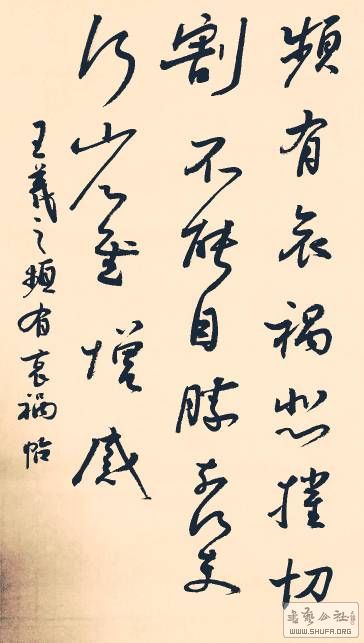 頻有哀禍悲摧切
割不能自勝奈何奈
何省慰增感
王羲之頻有哀禍帖
书艺公社
WWW.SHUFA.ORG